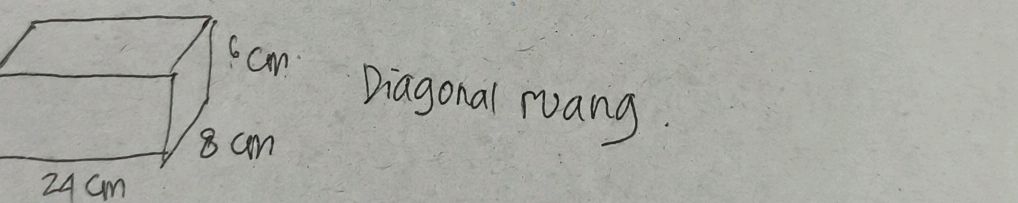 6 cm.
Diagonal ruang.
8 cm
24 cm